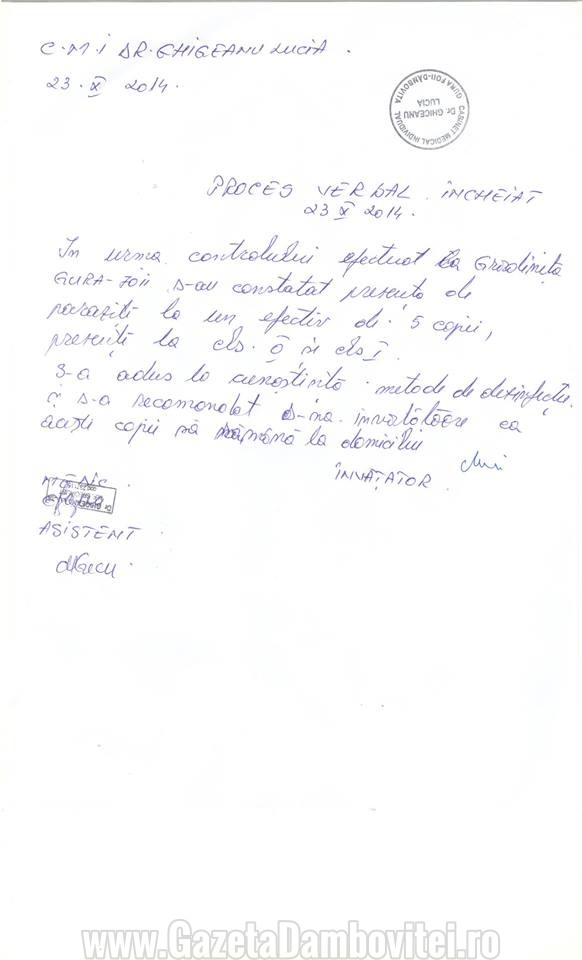 C.M.I DR. GHICEANU LUCIA.
23. X 2014.
CABINET MEDICAL INDIVIDUAL
Dr. GHICEANU T.
LUCIA
GURA FOII-DAMBOVITA
PROCES VERBAL ÎNCHEIAT
23 X 2014.
In urma controlului efectuat la Gradinița
GURA-FOII s-au constatat prezența de
paraziți la un efectiv de 5 copii,
prezenți la cls. 0 si cls I.
S-a adus la cunoștință metode de dezinfecție
și s-a recomandat d-na învățătoare ca
acești copii să rămână la domiciliu
ÎNVĂȚATOR
MEDIC
ASISTENT
www.GazetaDambovitei.ro